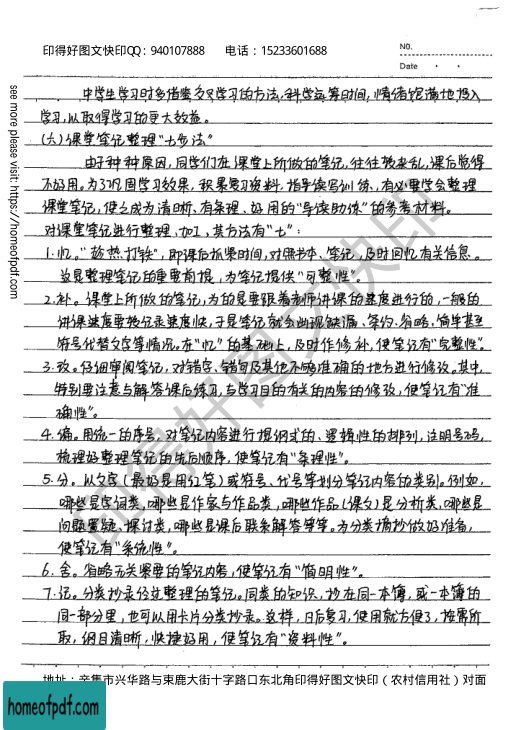 印得好图文快印QQ：940107888 电话：15233601688
NO.
Date
中学生学习时多借鉴文学学习的方法,科学运筹时间,情绪饱满地投入
学习,以取得学习的更大效益。
(六)课堂笔记整理“七步法”
由于种种原因,同学们在课堂上所做的笔记,往往较杂乱,课后觉得
不好用。为了巩固学习效果,积累复习资料,指导读写训练,有必要学会整理
课堂笔记,使之成为清晰、有条理、好用的“导读助练”的参考材料。
对课堂笔记进行整理、加工,其方法有“七”:
1.忆。“趁热打铁”,即课后抓紧时间,对照书本、笔记,及时回忆有关信息。
这是整理笔记的重要前提,为笔记提供“可整性”。
2.补。课堂上所做的笔记,为的是要跟着老师讲课的速度进行的,一般的
讲课速度要较记录速度快,于是笔记就会出现缺漏、简约、省略、简单甚至
符号代替文字等情况。在“忆”的基础上,及时作修补,使笔记有“完整性”。
3.改。仔细审阅笔记,对错字、错句及其他不够准确的地方进行修改。其中,
特别要注意与解答课后练习,与学习目的有关的内容的修改,使笔记有“准
确性”。
4.编。用统一的序号,对笔记内容进行提纲式的、逻辑性的排列,注明号码,
梳理好整理笔记的先后顺序,使笔记有“条理性”。
5.分。以文字(最好是用红笔)或符号、代号等划分笔记内容的类别。例如,
哪些是字词类,哪些是作家与作品类,哪些作品(课文)是分析类,哪些是
问题质疑、探讨类,哪些是课后联系解答等等。为分类摘抄做好准备,
使笔记有“系统性”。
6.舍。省略无关紧要的笔记内容,使笔记有“简明性”。
7.记。分类抄录经过整理的笔记。同类的知识,抄在同一本簿,或一本簿的
同一部分里,也可以用卡片分类抄录。这样,日后复习,使用就方便了,按需所
取,纲目清晰,快捷好用,使笔记有“资料性”。
地址：辛集市兴华路与束鹿大街十字路口东北角印得好图文快印（农村信用社）对面
see more please visit: https://homeofpdf.com
印得好图文快印
homeofpdf.com